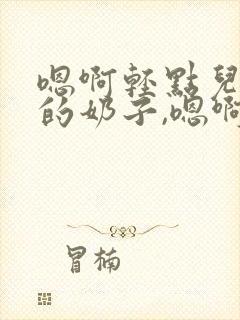 嗯啊轻點兒
的奶子,嗯啊
冒楠